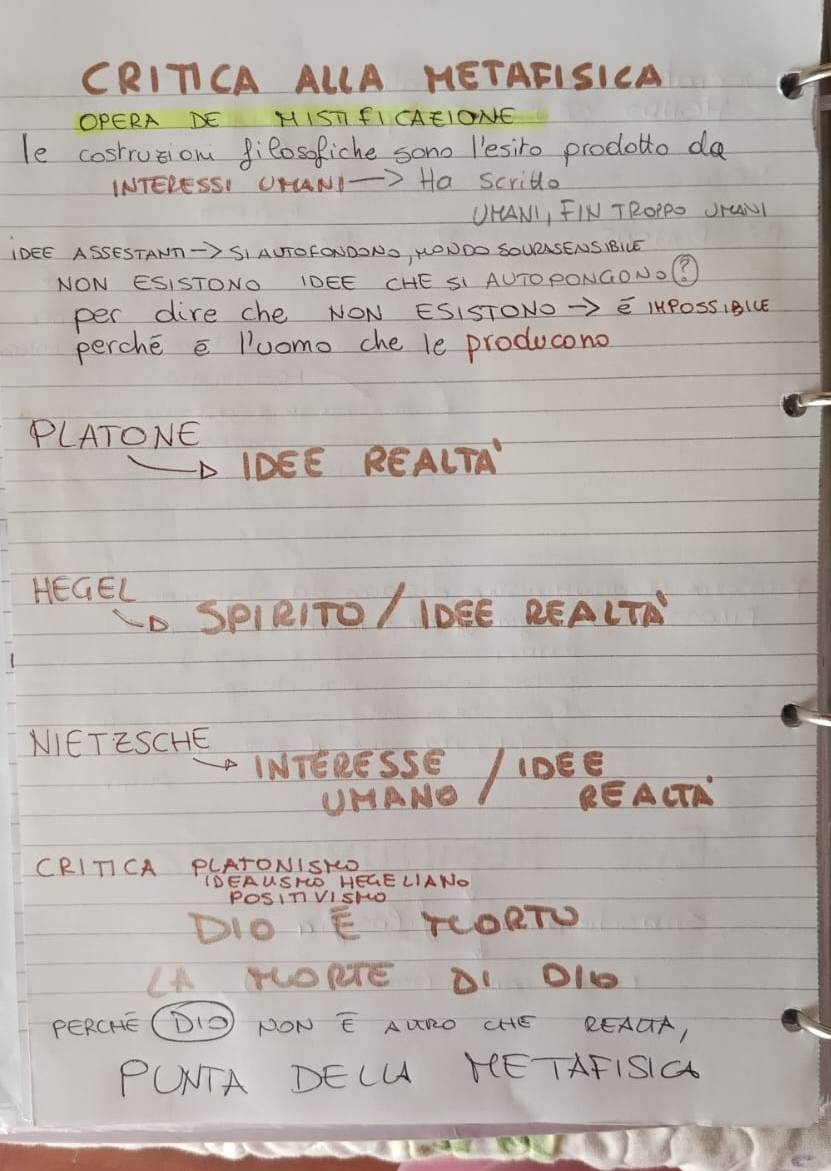 CRITICA ALLA METAFISICA
OPERA DE MISTIFICAZIONE
le costruzioni filosofiche sono l'esito prodotto da
INTERESSI UMANI -> Ha scritto
UMANI, FIN TROPPO UMANI
IDEE ASSESTANTI -> SI AUTOFONDONO, MONDO SOVRASENSIBILE
NON ESISTONO IDEE CHE SI AUTOPONGONO (?)
per dire che NON ESISTONO -> è IMPOSSIBILE
perché è l'uomo che le producono
PLATONE
-> IDEE REALTA'
HEGEL
-> SPIRITO / IDEE REALTA'
NIETZSCHE
-> INTERESSE / IDEE
UMANO / REALTA'
CRITICA PLATONISMO
IDEALISMO HEGELIANO
POSITIVISMO
DIO È MORTO
LA MORTE DI DIO
PERCHÈ DIO NON È ALTRO CHE REALTA,
PUNTA DELLA METAFISICA